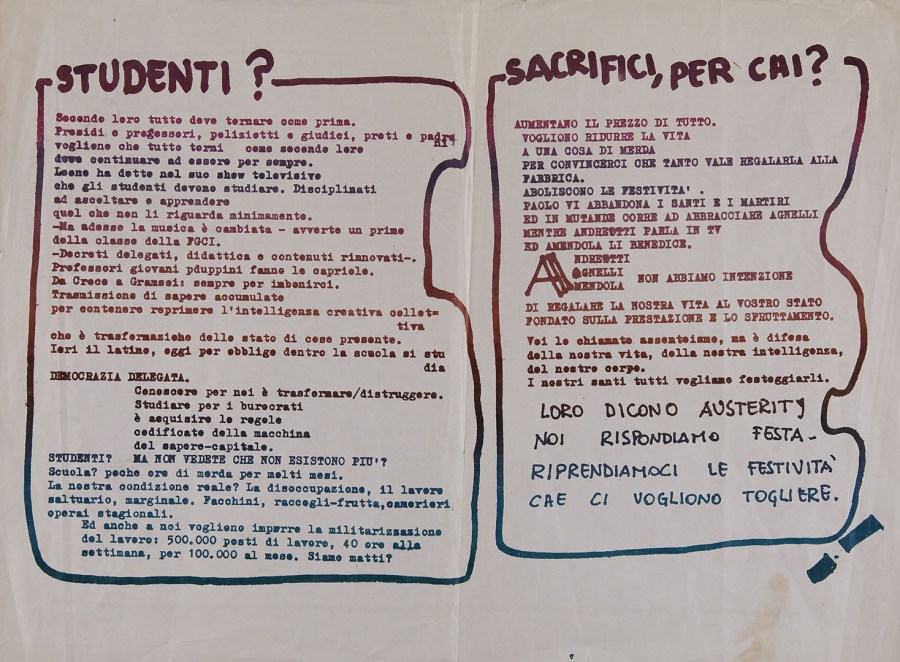 STUDENTI ?
Secondo loro tutto deve tornare come prima.
Presidi e professori, polizietti e giudici, preti e padro
ni
vogliono che tutto torni come secondo loro
deve continuare ad essere per sempre.
Leone ha detto nel suo show televisivo
che gli studenti devono studiare. Disciplinati
ad ascoltare e apprendere
quel che non li riguarda minimamente.
-Ma adesso la musica è cambiata - avverte un prime
della classe della FGCI.
-Decreti delegati, didattica e contenuti rinnovati-.
Professori giovani pduppini fanno le capriole.
Da Croce a Gramsci: sempre per imbonirci.
Trasmissione di sapere accumulato
per contenere reprimere l'intelligenza creativa collet=
tiva
che è trasformazione dello stato di cose presente.
Ieri il latino, oggi per obbligo dentro la scuola si stu
dia
DEMOCRAZIA DELEGATA.
Conoscere per noi è trasformare/distruggere.
Studiare per i burocrati
è acquisire le regole
codificate della macchina
del sapere-capitale.
STUDENTI? MA NON VEDETE CHE NON ESISTONO PIU'?
Scuola? poche ore di merda per molti mesi.
La nostra condizione reale? La disoccupazione, il lavoro
saltuario, marginale. Facchini, raccogli-frutta,camerieri
operai stagionali.
Ed anche a noi vogliono imporre la militarizzazione
del lavoro: 500.000 posti di lavoro, 40 ore alla
settimana, per 100.000 al mese. Siamo matti?
SACRIFICI, PER CHI?
AUMENTANO IL PREZZO DI TUTTO.
VOGLIONO RIDURRE LA VITA
A UNA COSA DI MERDA
PER CONVINCERCI CHE TANTO VALE REGALARLA ALLA
FABBRICA.
ABOLISCONO LE FESTIVITA' .
PAOLO VI ABBANDONA I SANTI E I MARTIRI
ED IN MUTANDE CORRE AD ABBRACCIARE AGNELLI
MENTRE ANDREOTTI PARLA IN TV
ED AMENDOLA LI BENEDICE.
ANDREOTTI
AGNELLI
AMENDOLA NON ABBIAMO INTENZIONE
DI REGALARE LA NOSTRA VITA AL VOSTRO STATO
FONDATO SULLA PRESTAZIONE E LO SFRUTTAMENTO.
Voi lo chiamate assenteismo, ma è difesa
della nostra vita, della nostra intelligenza,
del nostro corpo.
I nostri santi tutti vogliamo festeggiarli.
LORO DICONO AUSTERITY
NOI RISPONDIAMO FESTA -
RIPRENDIAMOCI LE FESTIVITA'
CHE CI VOGLIONO TOGLIERE.